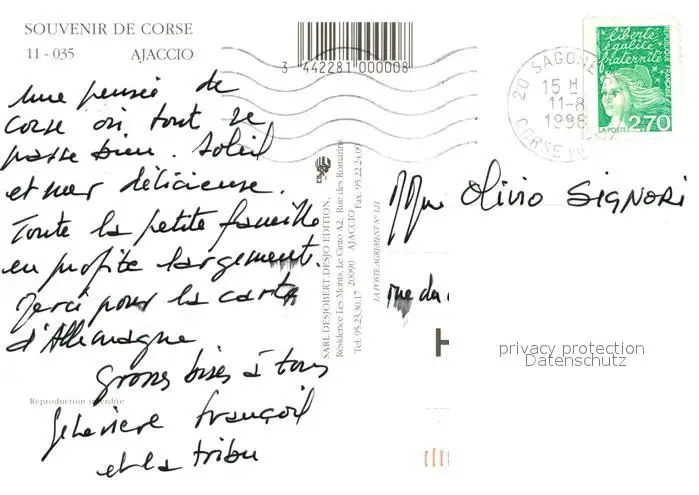 SOUVENIR DE CORSE
11 - 035 AJACCIO
3 442281 000008
une pensée de
corse où tout se
passe bien. Soleil
et mer délicieuse.
Toute la petite famille
en profite largement.
Merci pour la carte
d'Allemagne
grosses bises à tous
Geneviève François
et la tribu
Reproduction interdite
SARL DESJOBERT DESJO EDITION,
Résidence Les Monts, Le Cinto A2, Rue des Romarins
20090 AJACCIO
Tél: 95.23.30.17 Fax: 95.22.24.09
LA POSTE AGREMENT N° 121
20 SAGONE
15 H
11-8
1998
CORSE DU
liberté
égalité
fraternité
REPUBLIQUE FRANÇAISE
LA POSTE
2,70
Mme Olivio SIGNORI
rue du
privacy protection
Datenschutz